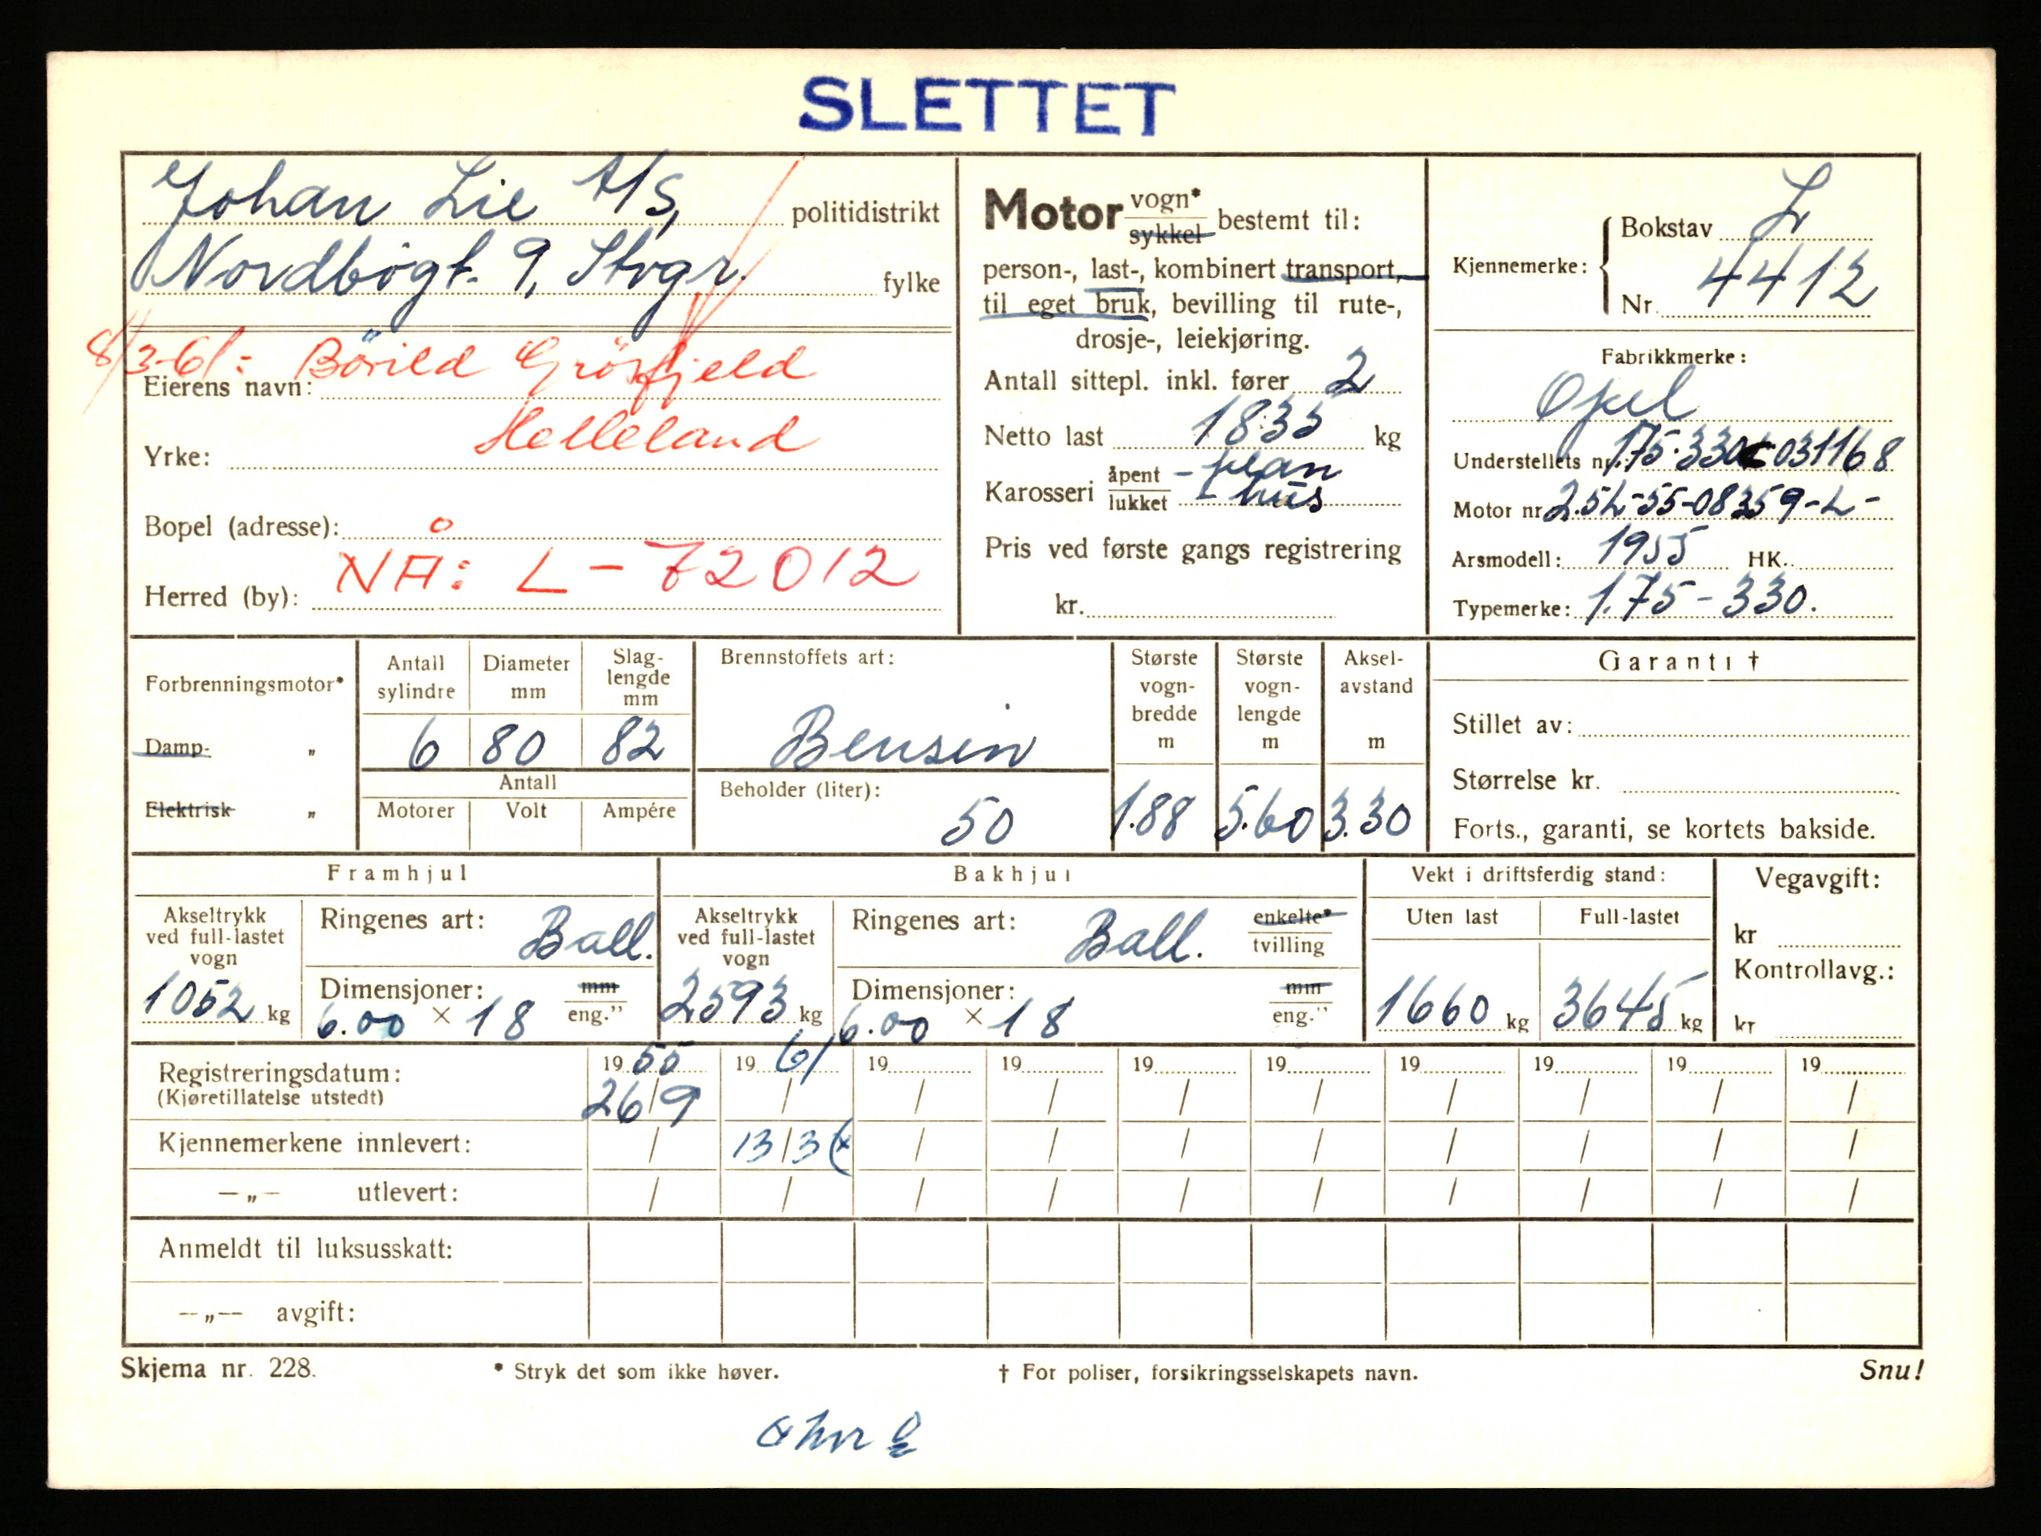 SLETTET
Johan Lie A/S, politidistrikt
Nordbøgt. 9, Stvgr. fylke
8/3-61: Børild Grøsfjeld
Eierens navn:
Helleland
Yrke:
Bopel (adresse):
NÅ: L-72012
Herred (by):
Motor vogn* sykkel bestemt til:
person-, last-, kombinert transport,
til eget bruk, bevilling til rute-,
drosje-, leiekjøring.
Antall sittepl. inkl. fører 2
Netto last 1835 kg
Karosseri åpent - plan
lukket - hus
Pris ved første gangs registrering
kr.
Kjennemerke: Bokstav L
Nr. 4412
Fabrikkmerke:
Opel
Understellets nr. 175.330 031168
Motor nr 2.5L-55-08359-L-
Arsmodell: 1955 HK.
Typemerke: 1.75-330.
Forbrenningsmotor*
Damp- „
Elektrisk „
Antall sylindre 6
Diameter mm 80
Slaglengde mm 82
Antall
Motorer Volt Ampére
Brennstoffets art:
Bensin
Beholder (liter):
50
Største vognbredde m 1.88
Største vognlengde m 5.60
Akselavstand m 3.30
Garanti †
Stillet av:
Størrelse kr.
Forts., garanti, se kortets bakside.
Framhjul
Akseltrykk ved full-lastet vogn
1052 kg
Ringenes art: Ball.
Dimensjoner: mm
6.00 × 18 eng."
Bakhjul
Akseltrykk ved full-lastet vogn
2593 kg
Ringenes art: Ball. enkelte* tvilling
Dimensjoner: mm
6.00 × 18 eng."
Vekt i driftsferdig stand:
Uten last Full-lastet
1660 kg 3645 kg
Vegavgift:
kr
Kontrollavg.:
kr
Registreringsdatum: 1955 1961 19 19 19 19 19 19 19 19
(Kjøretillatelse utstedt) 26/9 / / / / / / / / /
Kjennemerkene innlevert: / 13/3 / / / / / / / /
—„— utlevert: / / / / / / / / / /
Anmeldt til luksusskatt:
—„— avgift:
Skjema nr. 228. * Stryk det som ikke høver. † For poliser, forsikringsselskapets navn. Snu!